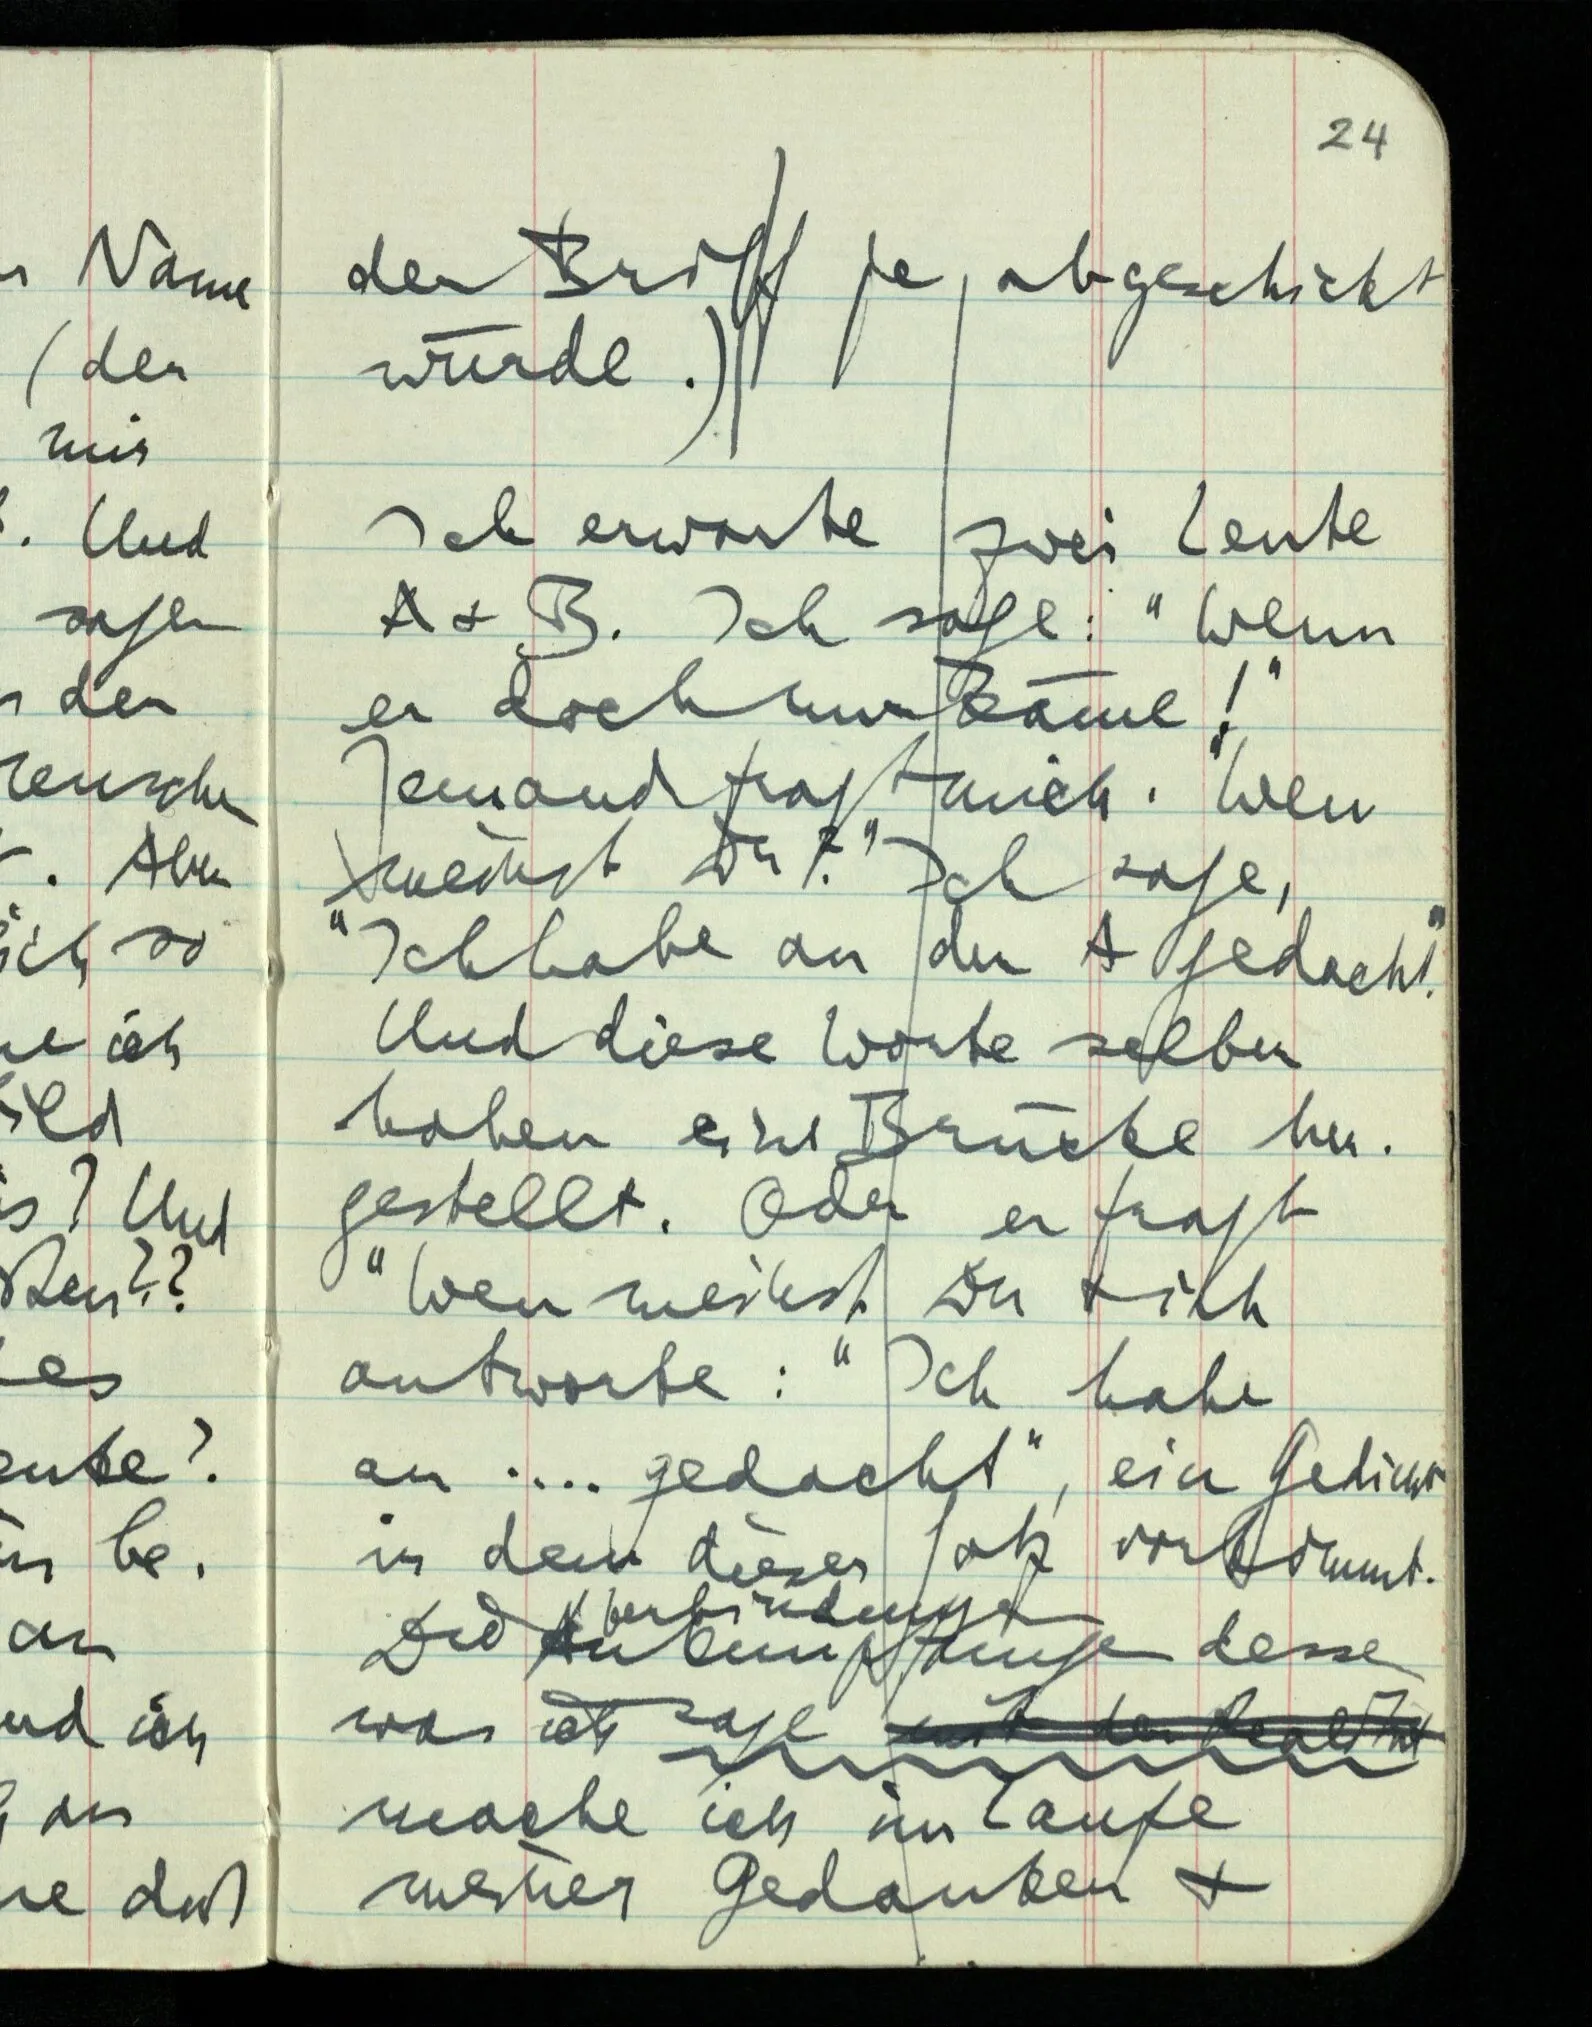 24
der Brief je, abgeschickt
würde.)
Ich erwarte zwei Leute
A & B. Ich sage: "Wenn
er doch nur käme!"
Jemand fragt mich. "Wen
meinst Du?" Ich sage,
"Ich habe an den A gedacht".
Und diese Worte selber
haben eine Brücke her.
gestellt. Oder er fragt
"Wen meinst Du & ich
antworte: "Ich habe
an .... gedacht", ein Gedicht
in dem dieser Satz vorkommt.
Verbindungen
Die Anknüpfungen dessen
was ich sage mit der Realität
mache ich im Laufe
meiner Gedanken &
Name
(der
mir
. Und
sagen
den
. Aber
so
ich
? Und
??
?
be.
an
ich
an
daß